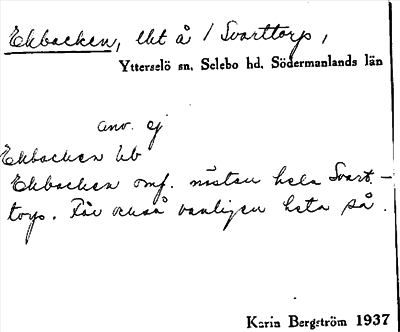 Ekbacken, lht å 1 Svarttorp,
Ytterselö sn, Selebo hd, Södermanlands län
anv. ej
Ekbacken hb
Ekbacken omf. nästan hela Svart-
torp. Får också vanligen heta så.
Karin Bergström 1937